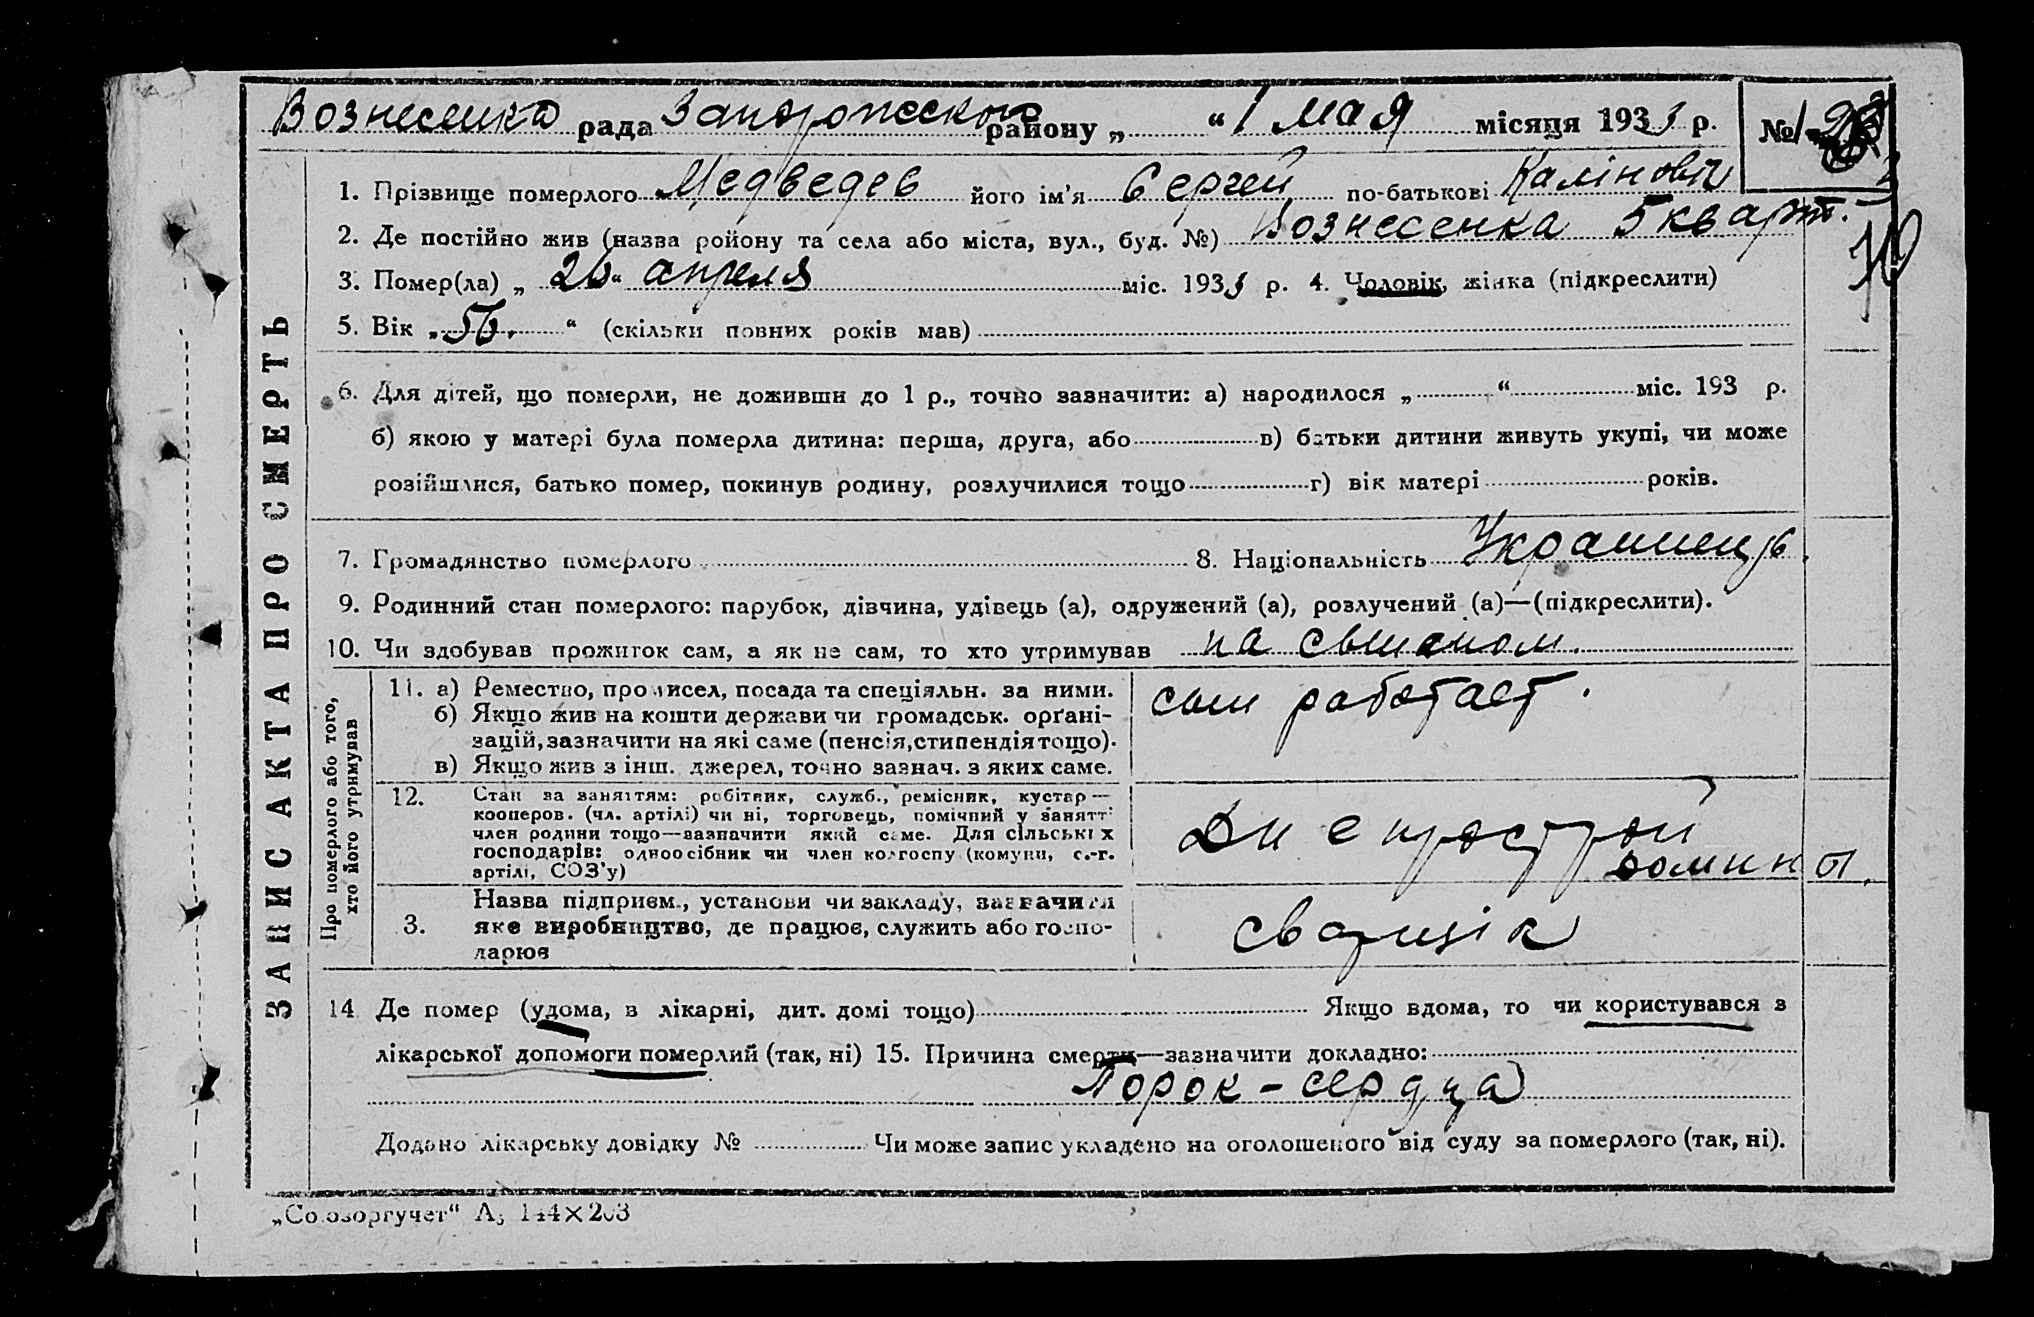 Вознесенка рада Запорожского району „ “ 1 мая місяця 1933 р. №
1. Прізвище померлого Медведев його ім'я Сергей по-батькові Калінович
2. Де постійно жив (назва району та села або міста, вул., буд. №) Вознесенка 5 кварт.
3. Помер(ла) „ “ апреля міс. 1933 р. 4. Чоловік, жінка (підкреслити)
5. Вік „ 56. “ (скільки повних років мав)
ЗАПИС АКТА ПРО СМЕРТЬ
6. Для дітей, що померли, не доживши до 1 р., точно зазначити: а) народилося „ “ міс. 193 р.
б) якою у матері була померла дитина: перша, друга, або в) батьки дитини живуть укупі, чи може
розійшлися, батько помер, покинув родину, розлучилися тощо г) вік матері років.
7. Громадянство померлого 8. Національність Украинец
9. Родинний стан померлого: парубок, дівчина, удівець (а), одружений (а), розлучений (а)—(підкреслити).
10. Чи здобував прожиток сам, а як не сам, то хто утримував на
Про померлого або того,
хто його утримував
11. а) Ремество, промисел, посада та спеціяльн. за ними. сын работает.
б) Якщо жив на кошти держави чи громадськ. орґані-
зацій, зазначити на які саме (пенсія, стипендія тощо).
в) Якщо жив з інш. джерел, точно зазнач. з яких саме.
12. Стан за заняттям: робітник, служб., ремісник, кустар—
кооперов. (чл. артілі) чи ні, торговець, помічний у занятт
член родини тощо—зазначити який саме. Для сільських
господарів: одноосібник чи член колгоспу (комуни, с.-г.
артілі, СОЗ'у)
Днепрострой
домины.
Назва підприєм., установи чи закладу, зазначити
3. яке виробництво, де працює, служить або госпо-
дарює
сварщік
14 Де помер (удома, в лікарні, дит. домі тощо) Якщо вдома, то чи користувався з
лікарської допомоги померлий (так, ні) 15. Причина смерти—зазначити докладно:
Порок - сердца
Додано лікарську довідку № Чи може запис укладено на оголошеного від суду за померлого (так, ні).
„Союзоргучет“ А5 144×203